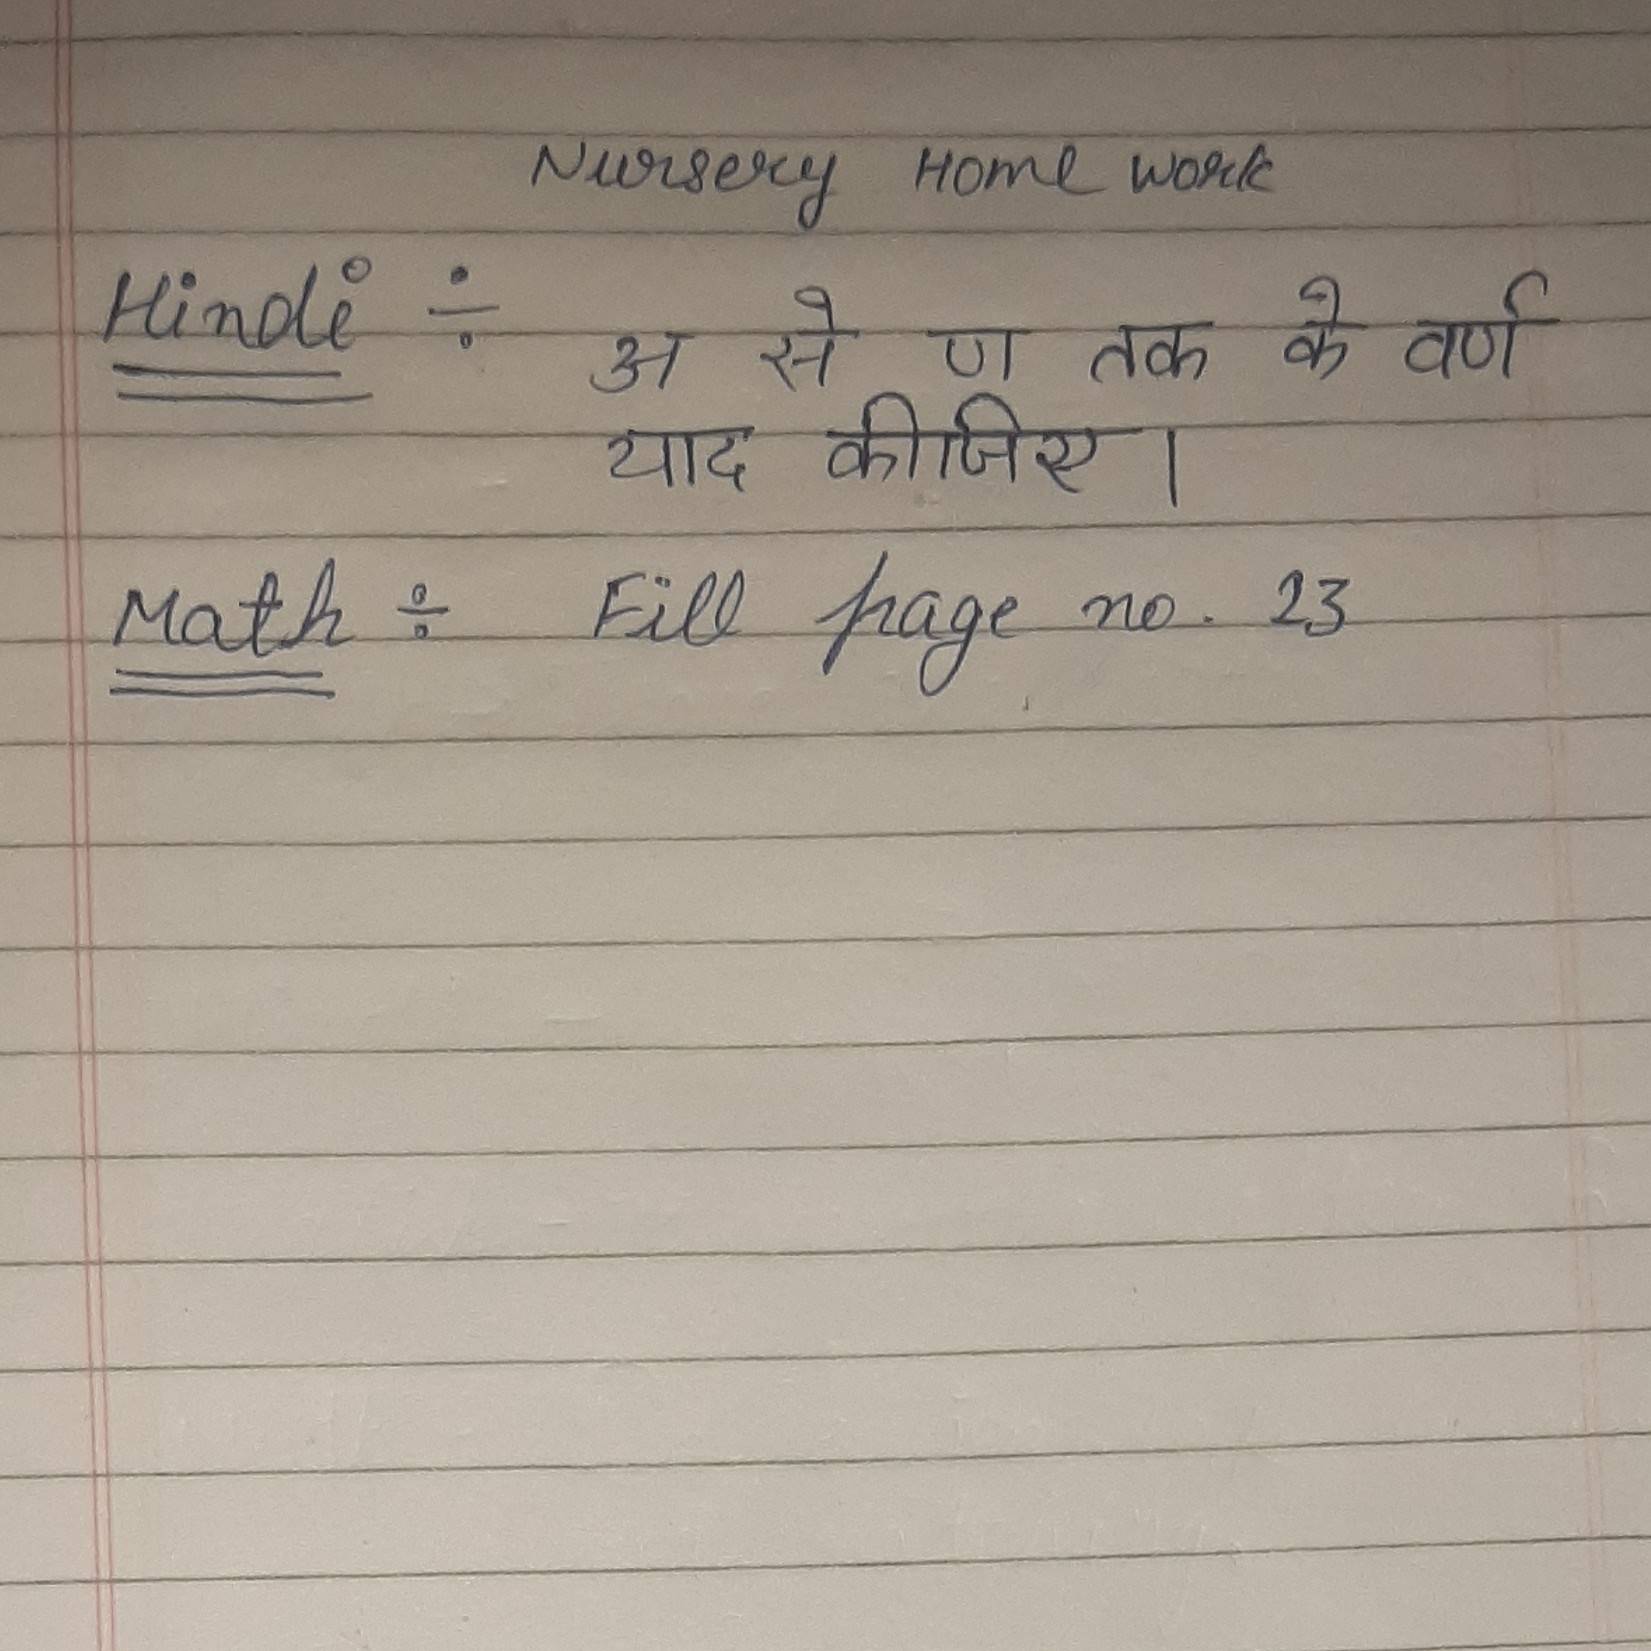 Nursery Home work
Hindi ÷ अ से ण तक के वर्ण
याद कीजिए।
Math ÷ Fill page no. 23